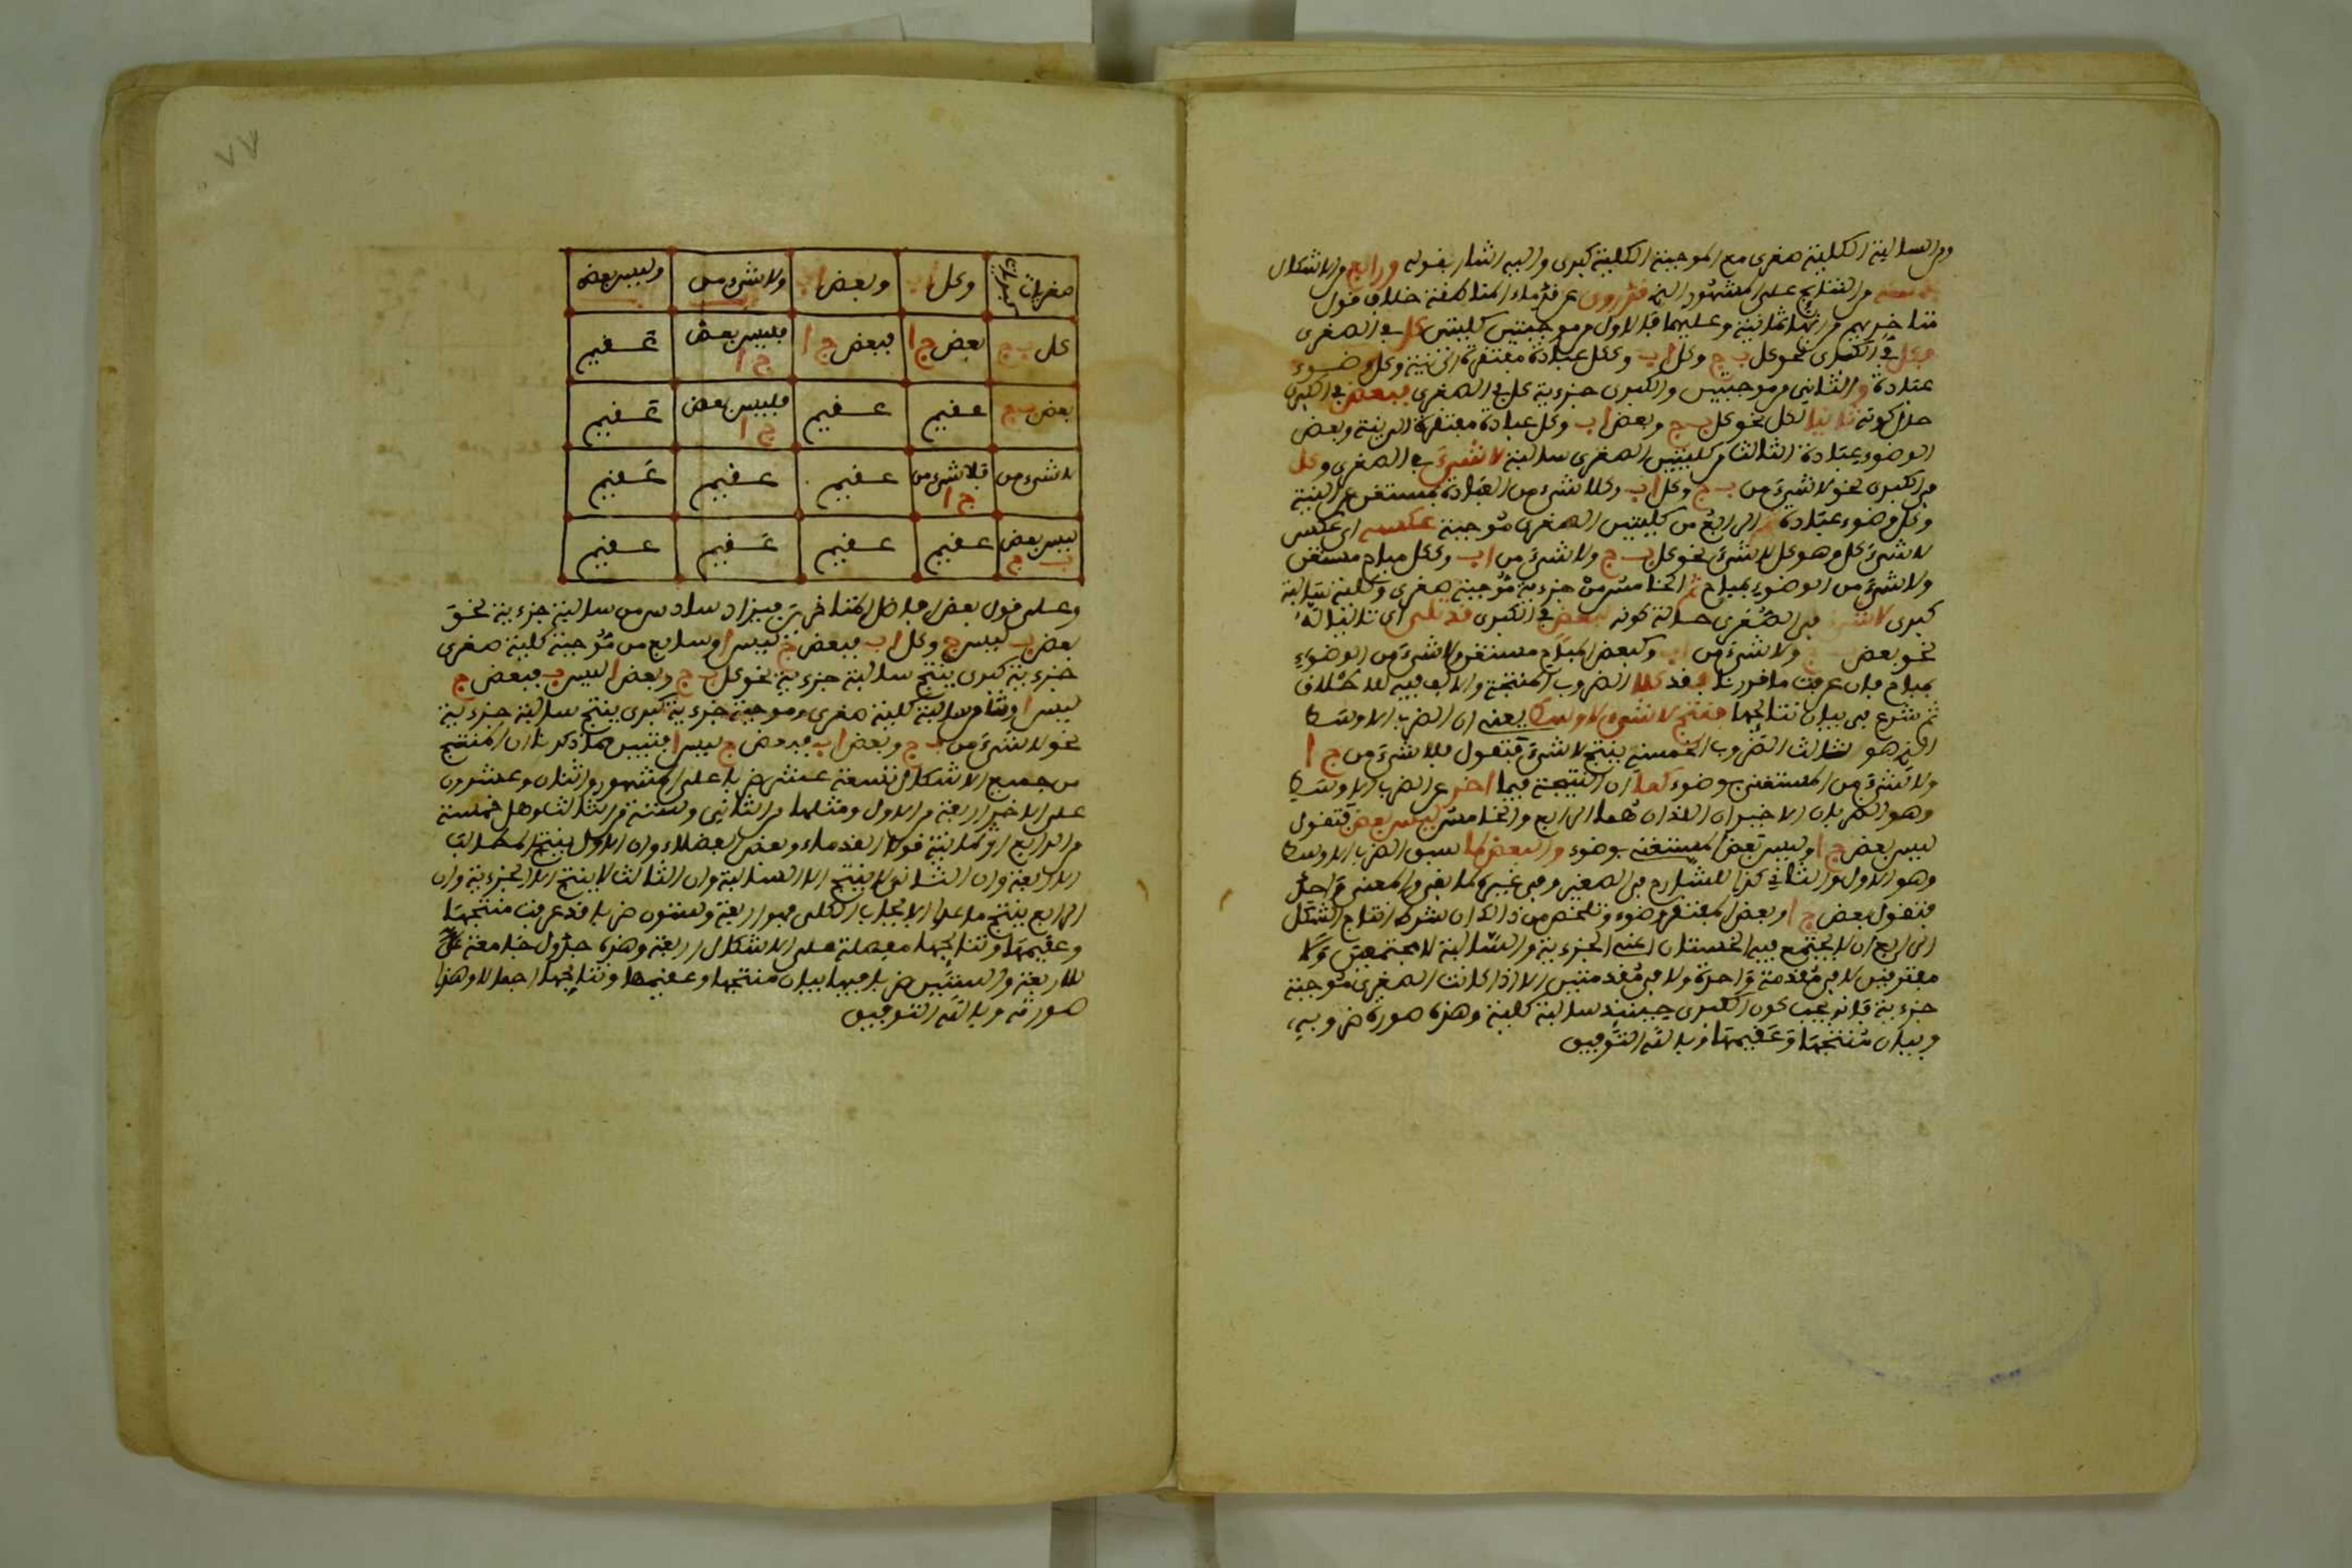 ومن السالبة الكلية صغرى مع الموجبة الكلية كبرى واليه اشار بقوله ورابع والاشكال
من النتايج على المشهور الخ فد روى عن قدماء المناطقة خلاف قول
متاخريهم من انها ثمانية وعليها فالاول من موجبتين كليتين كل في الصغرى
وكل في الكبرى نحو كل ب ج وكل ا ب وككل عبادة مفتقرة الى نية وكل وضوء
عبادة والثاني من موجبتين والكبرى جزءية كل في الصغرى ببعض في الكبرى
حال كونه تاليا لكل نحو كل ب ج وبعض ا ب وكل عبادة مفتقرة الى نية وبعض
الوضوء عبادة الثالث من كليتين الصغرى سالبة لا شيء في الصغرى وكل
في الكبرى نحو لا شيء من ب ج وكل ا ب وكلا شيء من العبادة بمستغن عن النية
وكل وضوء عبادة ثم الرابع من كليتين الصغرى موجبة عكسه اي عكس
لا شيء كل وهو كل لا شيء نحو كل ب ج ولا شيء من ا ب وككل مباح مستغن
ولا شيء من الوضوء بمباح ثم الخامس من جزءية موجبة صغرى وكلية سالبة
كبرى لا شيء في الصغرى حالة كونه لبعض في الكبرى قد تلى اي تاليا له
نحو بعض ب ج ولا شيء من ا ب وكبعض المباح مستغن ولا شيء من الوضوء
بمباح فان عرفت ما قررنا فقد كلا الضروب المنتجة والالف فيه للاطلاق
ثم شرع في بيان نتايجها فينتج لا شيء الاوسط يعني ان الضرب الاوسط
الذي هو ثالث الضروب الخمسة ينتج لا شيء فتقول فلا شيء من ج ا
ولا شيء من المستغنى بوضوء كما ان النتيجة فيما اخر عن الضرب الاوسط
وهو الضربان الاخيران اللذان هما الرابع والخامس ليس بعض فتقول
ليس بعض ج ا وليس بعض المستغنى بوضوء والبعض لما سبق الضرب الاوسط
وهو الاول والثاني كذا للشارح في الصغير وفي غيره كما بقي والمعنى واحد
فتقول بعض ج ا وبعض المفتقر وضوء وتلخص من ذالك ان شرط انتاج الشكل
الرابع ان لا يجتمع فيه الخستان اعني الجزءية والسالبة لا مجتمعتين ولا
مفترقتين لا في مقدمة واحدة ولا في مقدمتين الا اذا كانت الصغرى موجبة
جزءية فانه يجب كون الكبرى حينئذ سالبة كلية وهذه صورة ضروبه،
وبيان منتجها وعقيمها وبالله التوفيق
٧٧
صغريات كبريات وكل ا ب وبعض ا ب ولا شيء من وليس بعض
كل ب ج بعض ج ا فبعض ج ا فليس بعض ج ا عقيم
بعض ب ج عقيم عقيم فليس بعض ج ا عقيم
لا شيء من فلا شيء من ج ا عقيم عقيم عقيم
ليس بعض ب ج عقيم عقيم عقيم عقيم
وعلى قول بعض افاضل المتاخرين فيزاد سادس من سالبة جزءية نحو
بعض ب ليس ج وكل ا ب فبعض ج ليس ا وسابع من موجبة كلية صغرى
جزءية كبرى ينتج سالبة جزءية نحو كل ب ج وبعض ا ليس ب فبعض ج
ليس ا وثامن سالبة كلية صغرى وموجبة جزءية كبرى ينتج سالبة جزءية
نحو لا شيء من ب ج وبعض ا ب فبعض ج ليس ا فتبين مما ذكرنا ان المنتج
من جميع الاشكال تسعة عشر ضربا على المشهور واثنان وعشرون
على الاخر اربعة من الاول ومثلها من الثاني وستة من الثالث وهل خمسة
من الرابع او ثمانية قولا القدماء وبعض الفضلاء وان الاول ينتج المطالب
الاربعة وان الثاني لا ينتج الا السالبة وان الثالث لا ينتج الا الجزءية وان
الرابع ينتج ما عدا الايجاب الكلى فهو اربعة وستون ضربا قد عرفت منتجها
وعقيمها ونتايجها مفصلة على الاشكال الاربعة وهذه جدول جامعة
للاربعة والستين ضربا فيها بيان منتجها وعقيمها ونتايجها اجمالا وهذا
صورته وبالله التوفيق